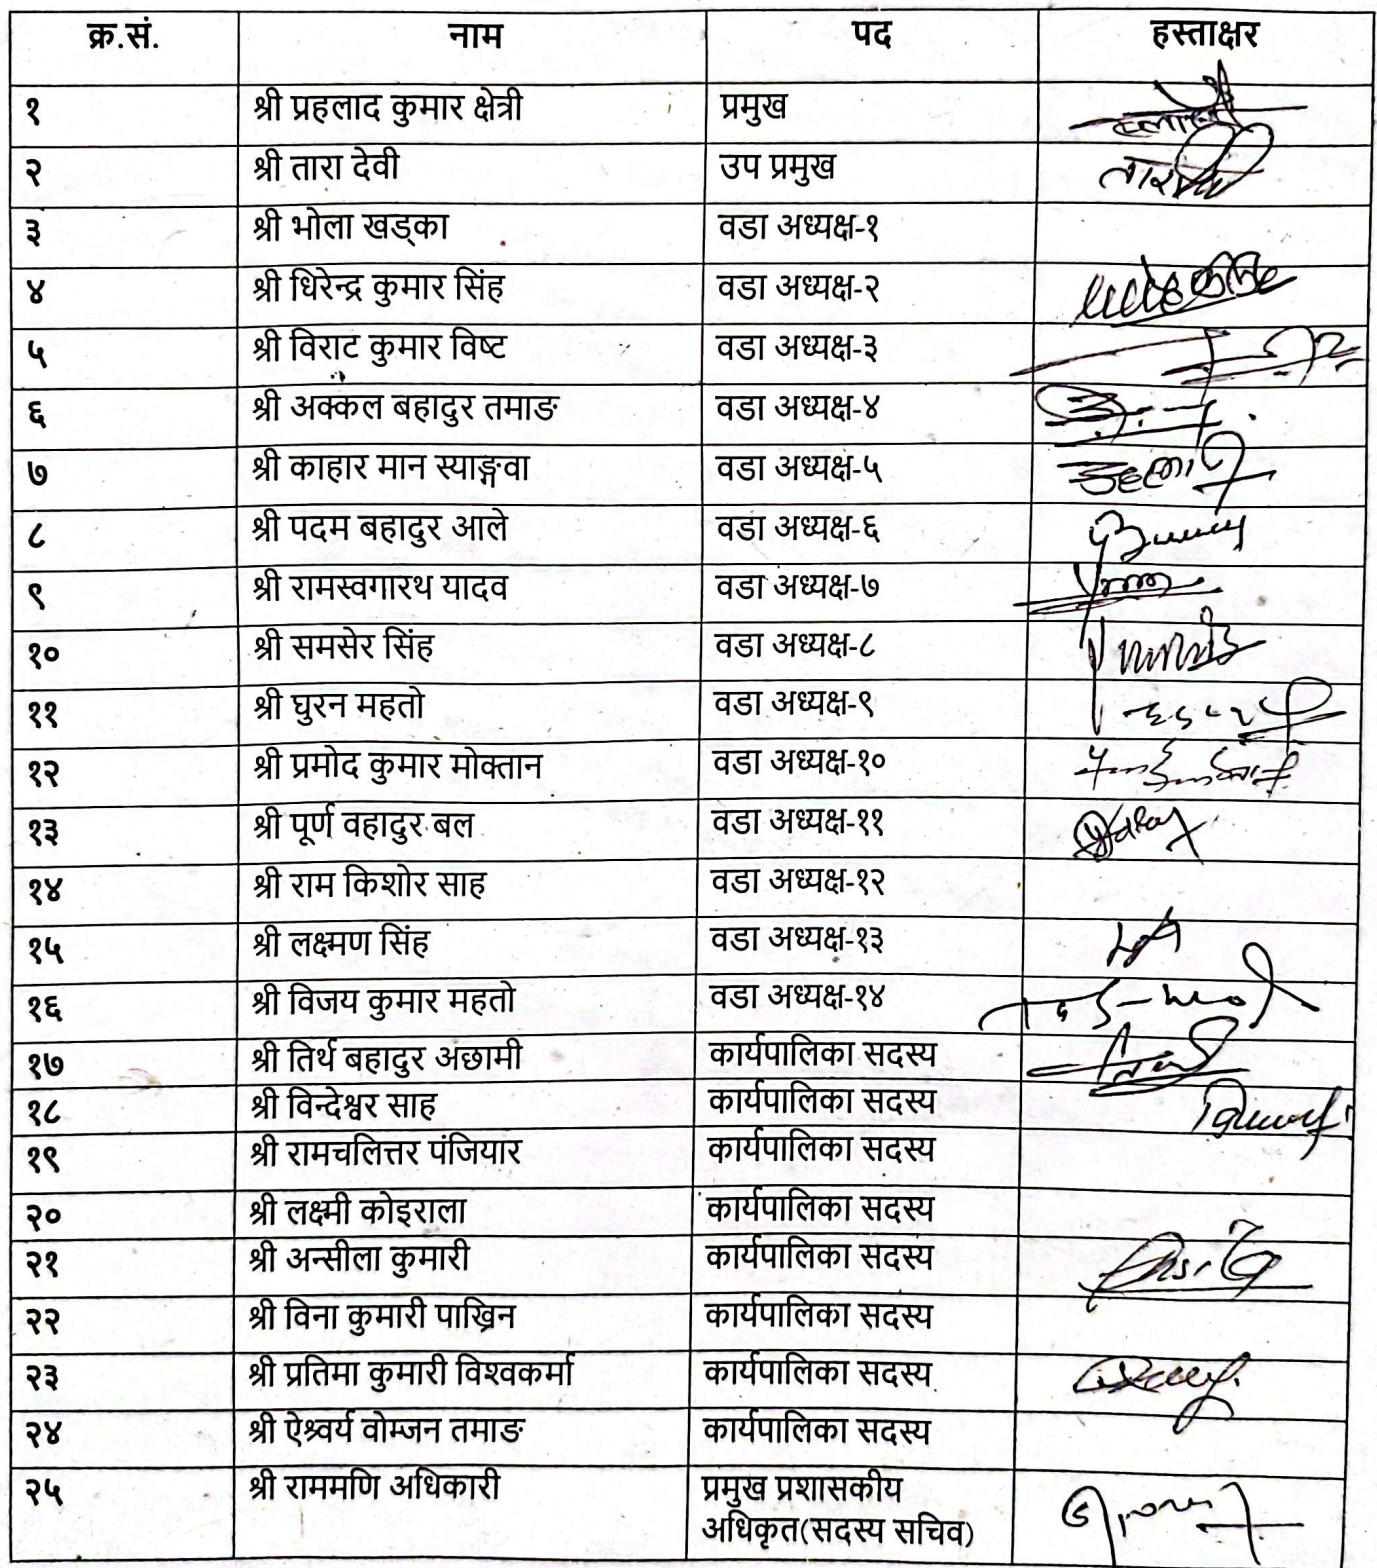 क्र.सं. नाम पद हस्ताक्षर
१ श्री प्रहलाद कुमार क्षेत्री प्रमुख
२ श्री तारा देवी उप प्रमुख
३ श्री भोला खड्का वडा अध्यक्ष-१
४ श्री धिरेन्द्र कुमार सिंह वडा अध्यक्ष-२
५ श्री विराट कुमार विष्ट वडा अध्यक्ष-३
६ श्री अक्कल बहादुर तमाङ वडा अध्यक्ष-४
७ श्री काहार मान स्याङ्गवा वडा अध्यक्ष-५
८ श्री पदम बहादुर आले वडा अध्यक्ष-६
९ श्री रामस्वगारथ यादव वडा अध्यक्ष-७
१० श्री समसेर सिंह वडा अध्यक्ष-८
११ श्री घुरन महतो वडा अध्यक्ष-९
१२ श्री प्रमोद कुमार मोक्तान वडा अध्यक्ष-१०
१३ श्री पूर्ण वहादुर बल वडा अध्यक्ष-११
१४ श्री राम किशोर साह वडा अध्यक्ष-१२
१५ श्री लक्ष्मण सिंह वडा अध्यक्ष-१३
१६ श्री विजय कुमार महतो वडा अध्यक्ष-१४
१७ श्री तिर्थ बहादुर अछामी कार्यपालिका सदस्य
१८ श्री विन्देश्वर साह कार्यपालिका सदस्य
१९ श्री रामचलित्तर पंजियार कार्यपालिका सदस्य
२० श्री लक्ष्मी कोइराला कार्यपालिका सदस्य
२१ श्री अन्सीला कुमारी कार्यपालिका सदस्य
२२ श्री विना कुमारी पाख्रिन कार्यपालिका सदस्य
२३ श्री प्रतिमा कुमारी विश्वकर्मा कार्यपालिका सदस्य
२४ श्री ऐश्वर्य वोम्जन तमाङ कार्यपालिका सदस्य
२५ श्री राममणि अधिकारी प्रमुख प्रशासकीय
अधिकृत(सदस्य सचिव)